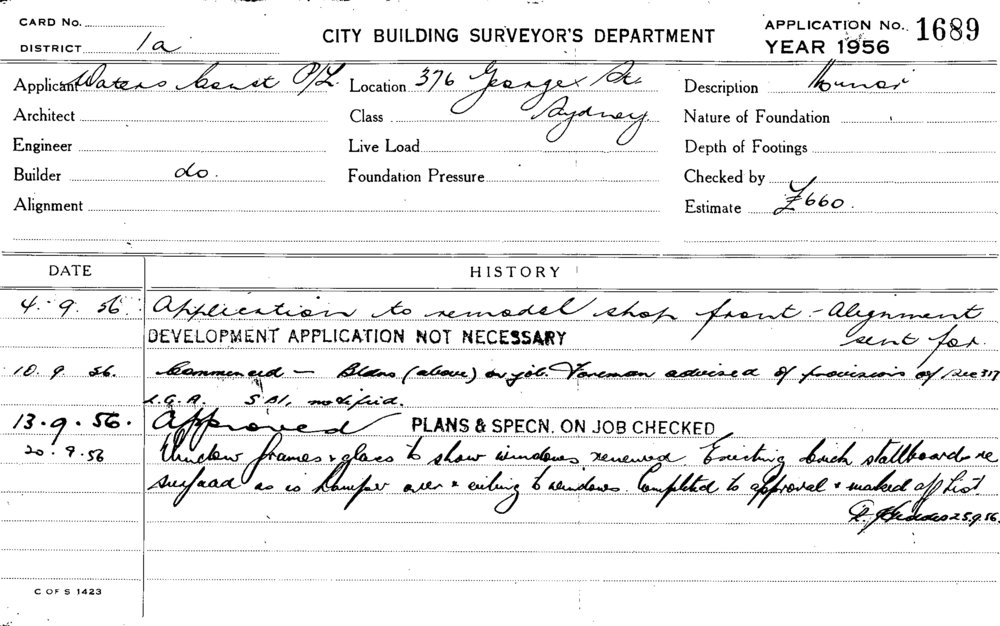 CARD No.
DISTRICT 1a
CITY BUILDING SURVEYOR'S DEPARTMENT
APPLICATION No. 1689
YEAR 1956
Applicant Waters Const P/L. Location 376 George St. Description
Architect Class Sydney Nature of Foundation
Engineer Live Load Depth of Footings
Builder do. Foundation Pressure Checked by
Alignment Estimate £660.
DATE HISTORY
4. 9. 56. Application to remodel shop front - Alignment
DEVELOPMENT APPLICATION NOT NECESSARY sent for.
10. 9. 56. Commenced — Bldrs (above) on job. Foreman advised of provisions of Sec 317
L.G.A. notified.
13. 9. 56. Approved PLANS & SPECN. ON JOB CHECKED
20. 9. 56 Window frames & glass to show windows renewed Existing brick stallboards re
surfaced as is hamper over & ceiling to windows. Completed to approval & marked off list
25.9.56.
C OF S 1423